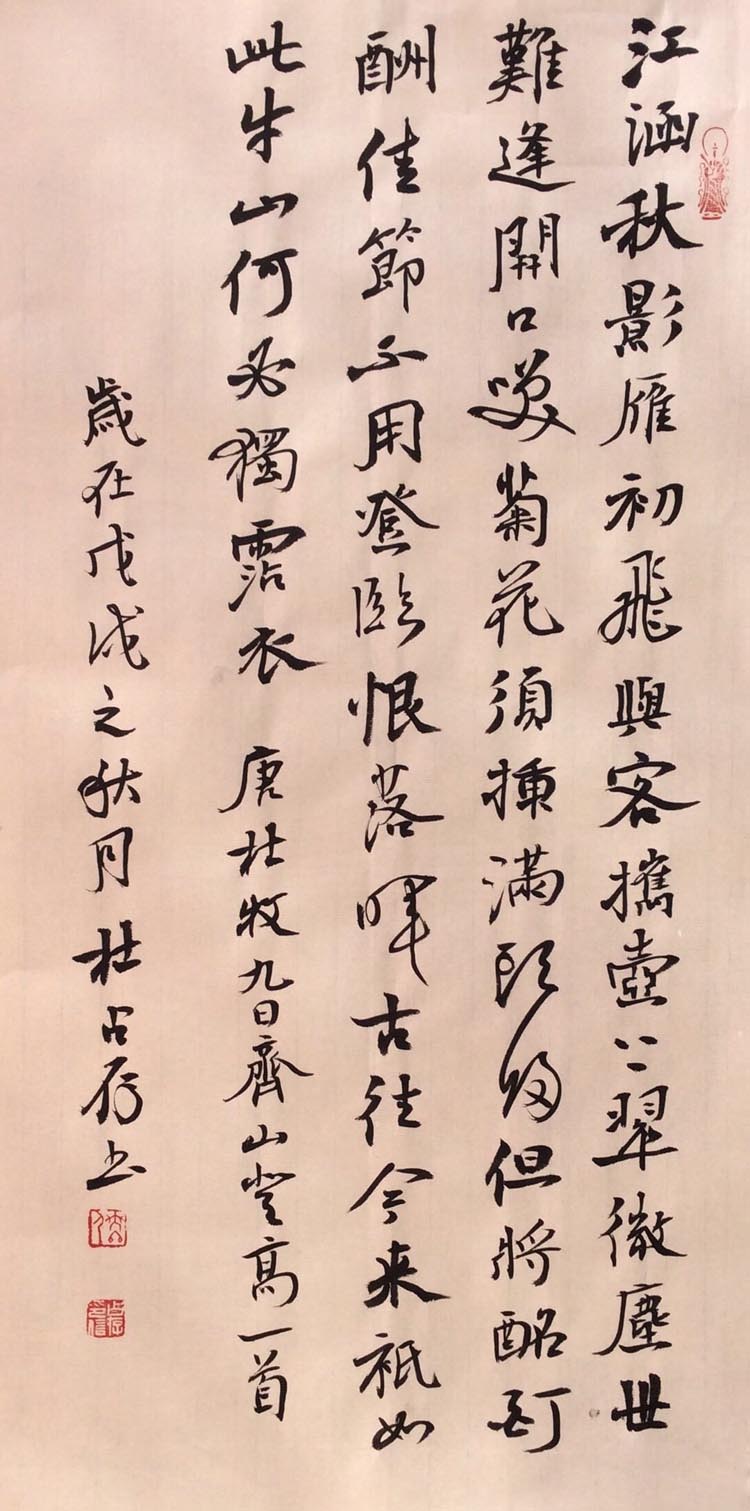 江涵秋影雁初飛與客攜壺上翠微塵世
難逢開口笑菊花須插滿頭歸但將酩酊
酬佳節不用登臨恨落暉古往今來祇如
此牛山何必獨霑衣 唐杜牧九日齊山登高一首
歲在戊戌之秋月杜占存书